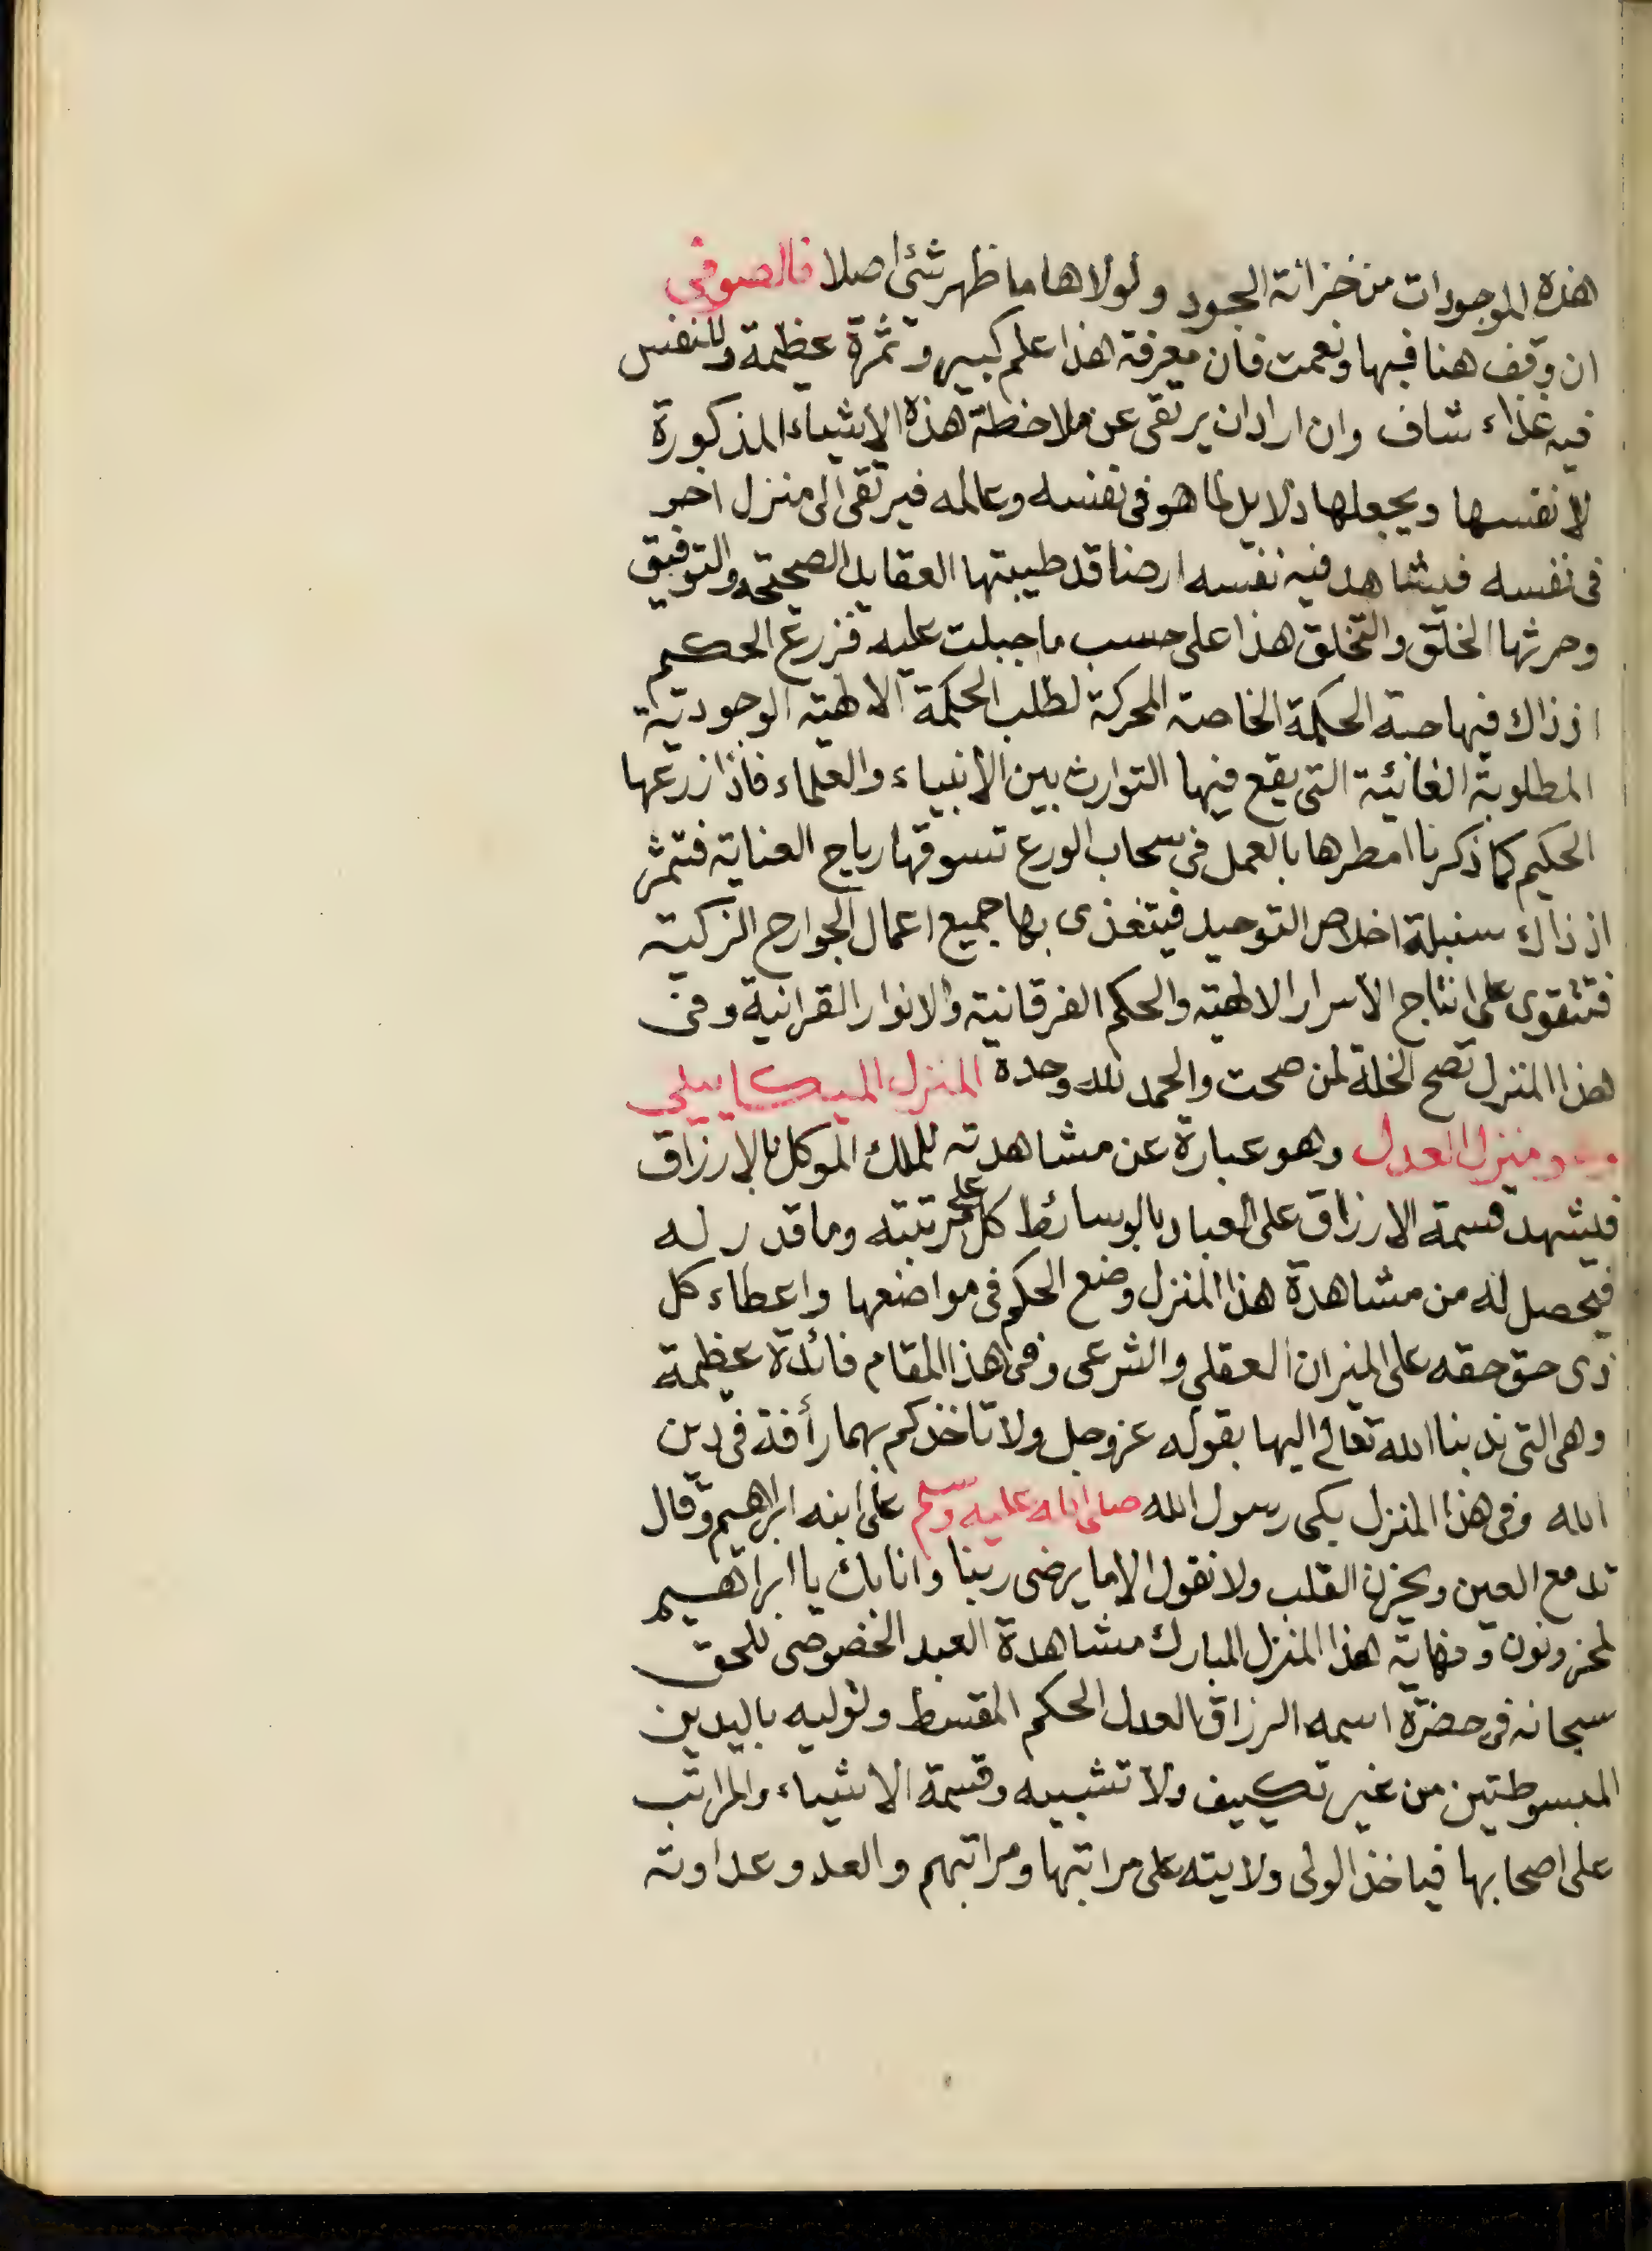 هذه الموجودات من خزانة الجود ولولاها ما ظهر شئ اصلا فالصوفى
ان وقف هنا فبها ونعمت فان معرفة هذا علم كبير وثمرة عظيمة وللنفس
فيه غذاء شاف وان اراد ان يرتقى عن ملاحظة هذه الاشياء المذكورة
لانفسها ويجعلها دلايل لما هو فى نفسه وعالمه فيرتقى الى منزل اخر
فى نفسه فيشاهد فيه نفسه ارضا قد طيبتها العقايد الصحيحة والتوفيق
وحرثها الخلق والتخلق هذا على حسب ما جبلت عليه فزرع الحكيم
اذ ذاك فيها حبة الحكمة الخاصة المحركة لطلب الحكمة الالهية الوجودية
المطلوبة الغائية التى يقع فيها التوارث بين الانبياء والعلماء فاذا زرعها
الحكيم كما ذكرنا امطرها بالعمل فى سحاب الورع تسوقها رياح العناية فتثمر
اذ ذاك سنبلة اخلاص التوحيد فيتغذى بها جميع اعمال الجوارح الزكية
فتتقوى على انتاج الاسرار الالهية والحكم الفرقانية والانوار القرانية وفى
هذا المنزل تصح الخلة لمن صحت والحمد لله وحده المنزل الميكاييلى
ومنزل العدل وهو عبارة عن مشاهدته للملك الموكل بالارزاق
فيشهد قسمة الارزاق على العباد بالوسائط كل على مرتبته وما قدر له
فيحصل له من مشاهدة هذا المنزل وضع الحكم فى مواضعها واعطاء كل
ذى حق حقه على الميزان العقلى والشرعى وفى هذا المقام فائدة عظيمة
وهى التى ندبنا الله تعالى اليها بقوله عز وجل ولا تاخذكم بهما رأفة فى دين
الله وفى هذا المنزل بكى رسول الله صلى الله عليه وسلم على ابنه ابراهيم وقال
تدمع العين ويحزن القلب ولا نقول الا ما يرضى ربنا وانا بك يا ابراهيم
لمحزونون وفهاية هذا المنزل المبارك مشاهدة العبد الخصوصى للحق
سبحانه فى حضرة اسمه الرزاق العدل الحكم المقسط وتوليه باليدين
المبسوطتين من غير تكييف ولا تشبيه وقسمة الاشياء والمراتب
على اصحابها فياخذ الولى ولايته على مراتبها ومراتبهم والعدو عداوته